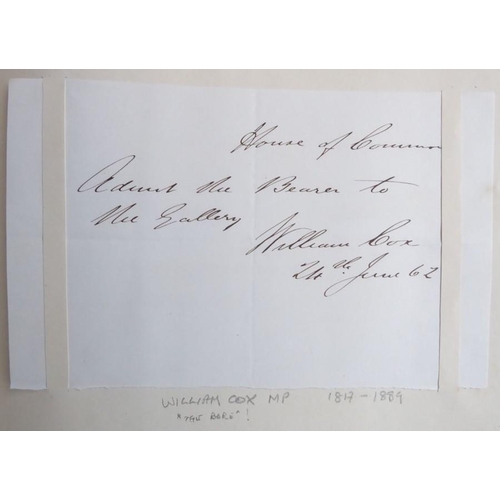 House of Common
Admit the Bearer to
the Gallery
William Cox
24th June 62
WILLIAM COX MP 1817 - 1889
"THE BORE"!